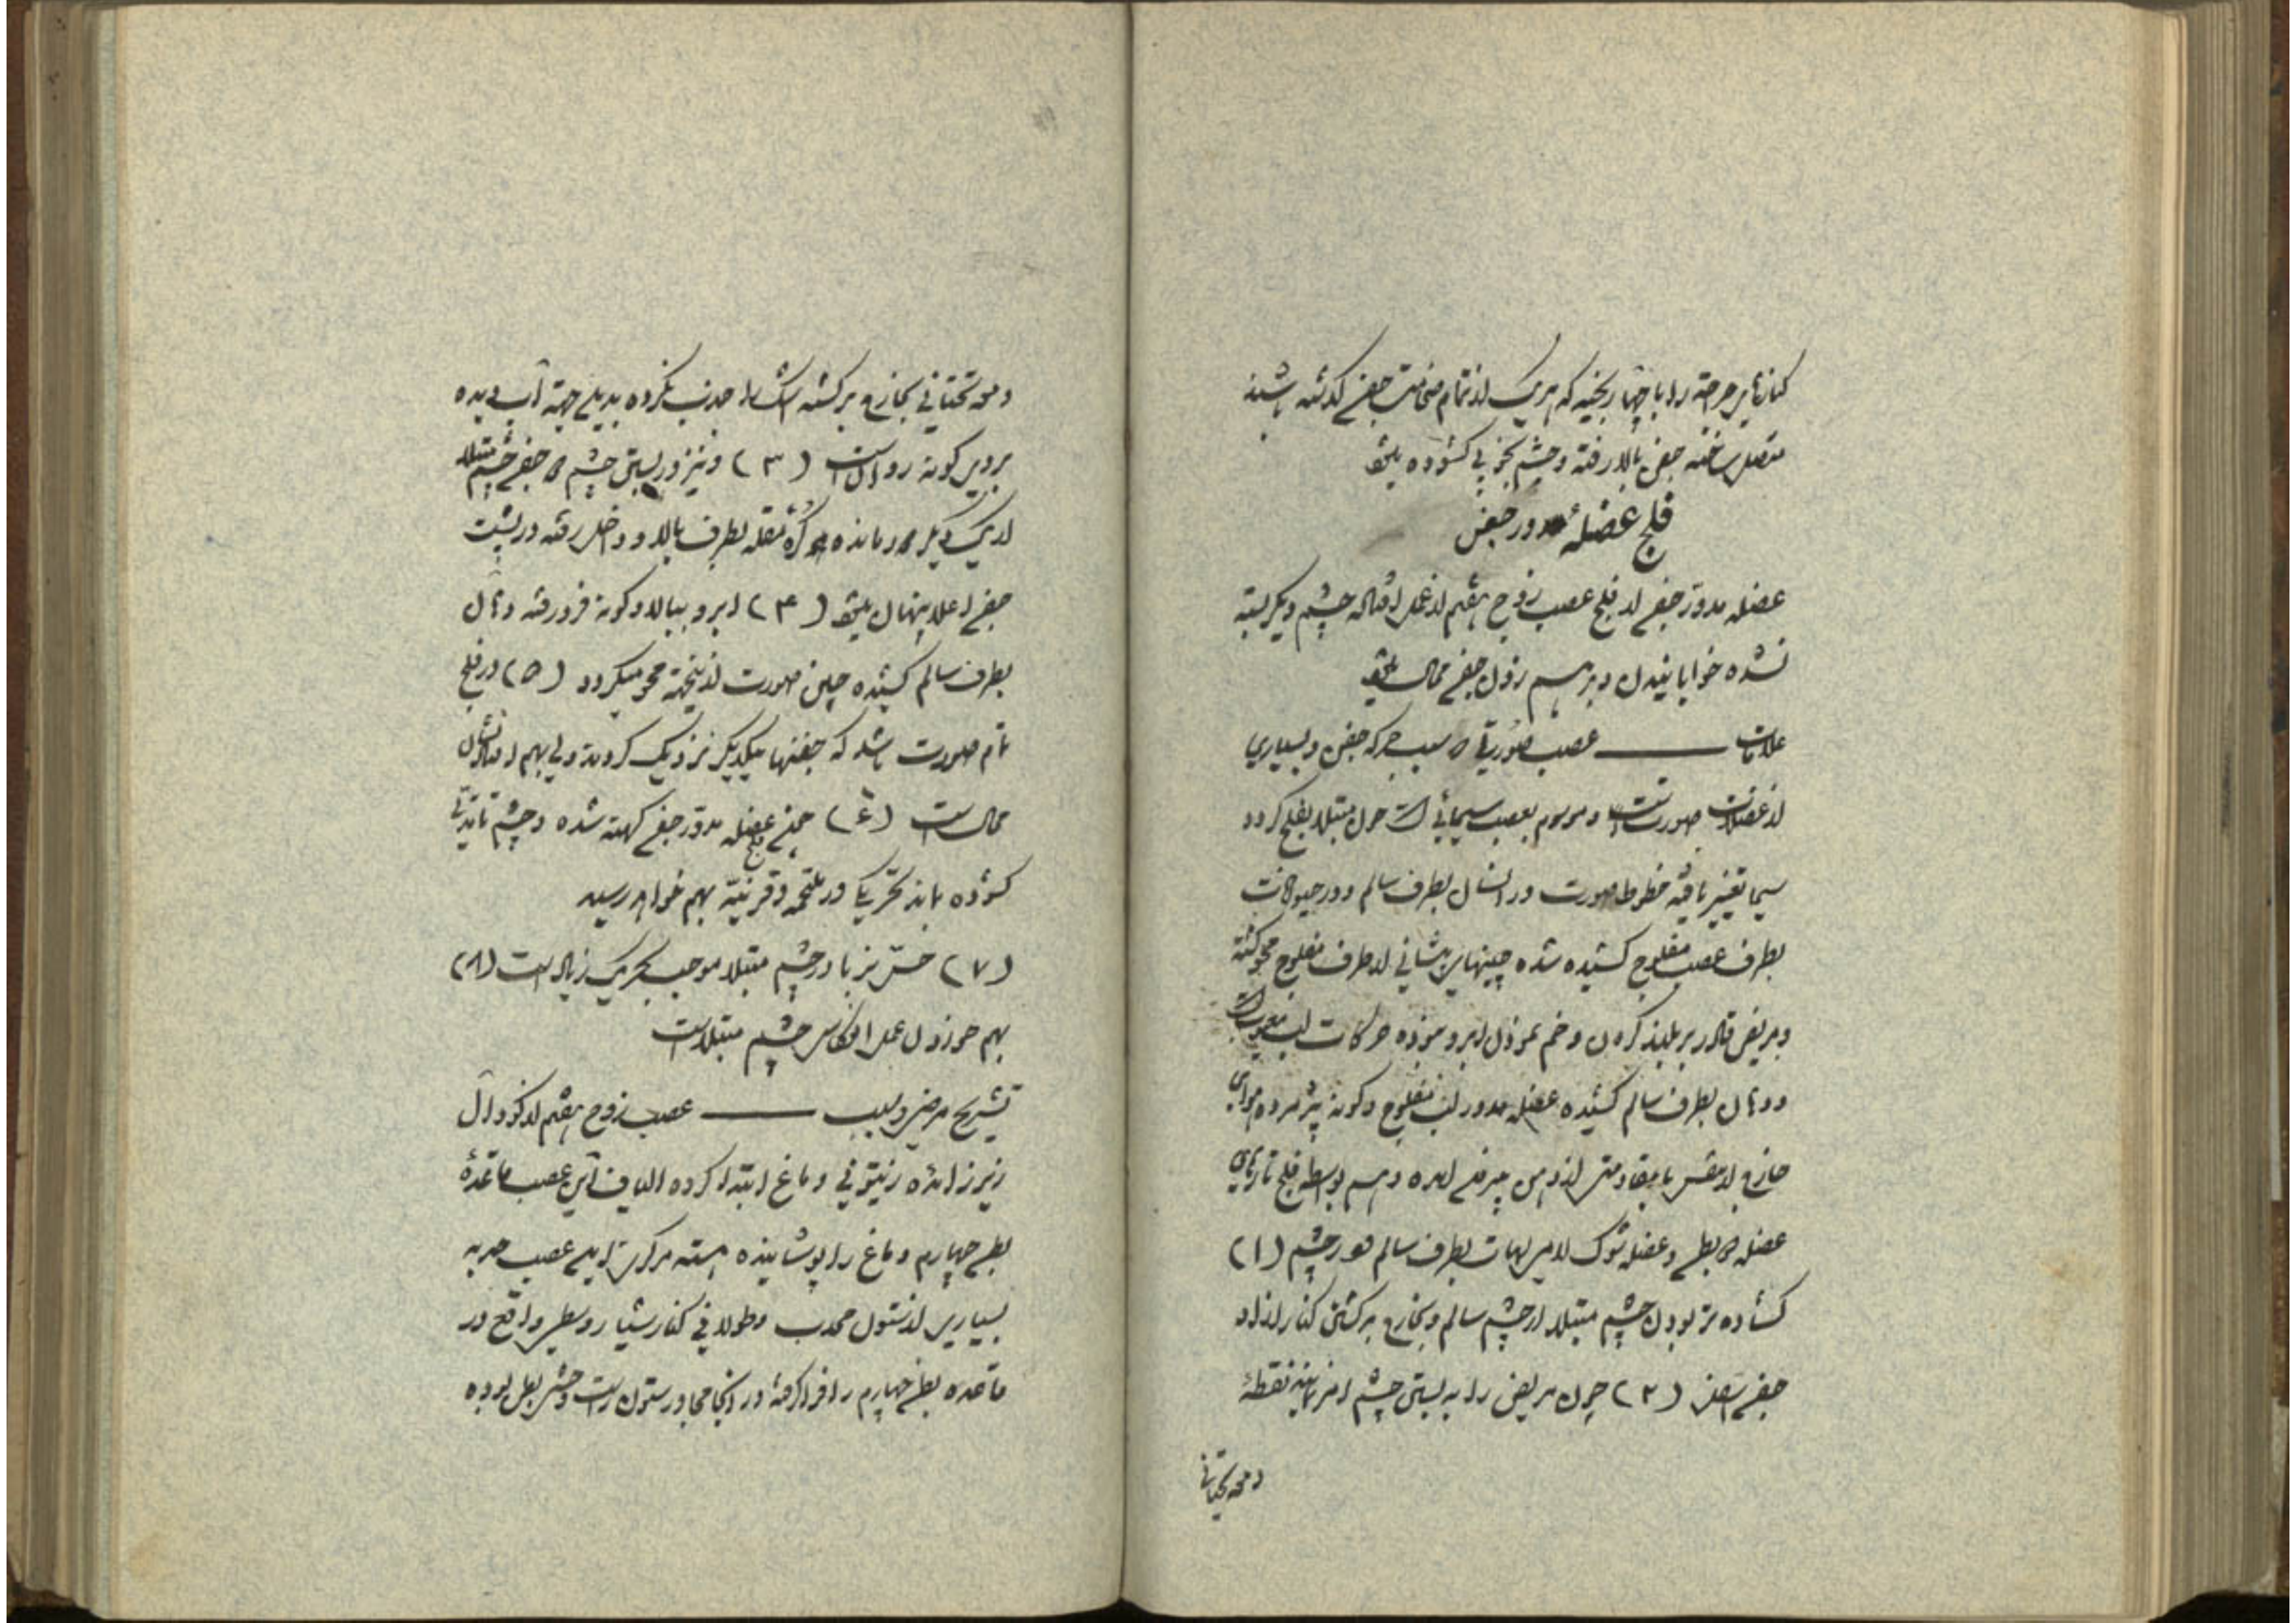 کنارهای جراحت را با چهار بخیه که هر یک از تمام ضخامت جفن گذشته باشند
متصل ساخته جفن بالا رفته و چشم بخوبی گشوده
فلج عضلهٔ مدور جفن
عضله مدور جفن از فلج عصب زوج هفتم از عمل افتاده چشم دیگر بسته
نشده خوابانیدن و برهم زدن جفن محال
علامات ــــــ عصب صورتی سبب حرکه جفن و بسیاری
از عضلات صورت است و موسوم بعصب سیمائی است چون مبتلا بفلج گردد
سیما تغییر یافته خطوط صورت در انسان بطرف سالم و در حیوانات
بطرف عصب مفلوج کشیده شده چینهای پیشانی از طرف مفلوج محو گشته
و مریض قادر بر بلند کردن و خم نمودن ابرو نبوده حرکات لب
و دهان بطرف سالم کشیده عضله مدور لب مفلوج و گونه پژمرده هوای
خارج از تنفس از دهن بیرون آمده و هم بواسطه فلج تارهای
عضله و عضله بطرف سالم چشم (۱)
گشاده تر بودن چشم مبتلا از چشم سالم و بخارج برگشتن کنار آزاد
جفن اسفل (۲) چون مریض را به بستن چشم امر نمایند نقطهٔ
دمعه تحتانی
دمعه تحتانی بخارج برگشته اشک را جذب نکرده بدین جهة آب دیده
بر روی گونه روان است (۳) و نیز در بستن چشم جفن چشم مبتلا
از یکدیگر دور مانده کرهٔ مقله بطرف بالا و داخل رفته در پشت
جفن اعلا پنهان (۴) ابرو ببالا و گونه فرو رفته دهان
بطرف سالم کشیده چین صورت از اینجهة محو میگردد (۵) در فلج
تام صورت باشد که جفنها بیکدیگر نزدیک گردند ولی بهم افتادنشان
محال است (۶) چون فلج عضله مدور جفن کهنه شده و چشم تا مدتی
گشوده ماند تحریکی در ملتحمه و قرنیة بهم خواهد رسید
(۷) حس نیز با در چشم مبتلا موجب تحریک زیاد است (۸)
بهم خوردن عمل انعکاس چشم مبتلاست
تشریح مرضی و سبب ــــــ عصب زوج هفتم از گودال
زیر زائده زیتونی دماغ ابتدا کرده الیاف این عصب قاعدهٔ
بطن چهارم دماغ را پوشانیده هسته مرکزی اصلی عصب
بسیاری از ستون محدب و طولانی کنار شیار وسطی واقع در
قاعده بطن چهارم را فرا گرفته در انجا مجاور ستون راست بوده